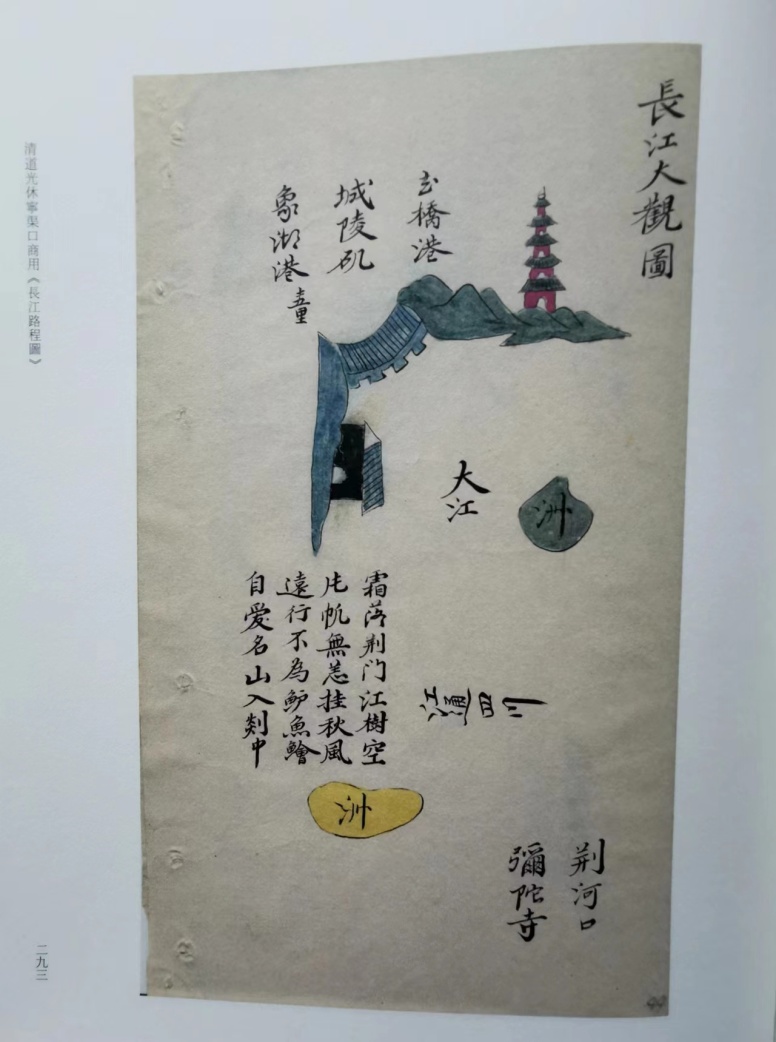 長江大觀圖
橋港
城陵矶
象湖港
大江
洲
霜落荆门江樹空
片帆無恙挂秋風
遠行不為鲈魚鱠
自愛名山入剡中
江通四川
洲
荆河口
彌陀寺
44
清道光休寧渠口商用《長江路程圖》
二九三